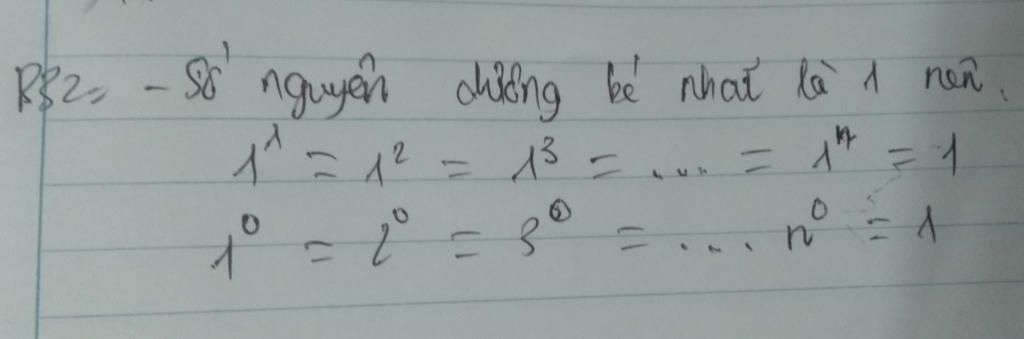 B§2, - Số nguyên dương bé nhất là 1 nên.
1¹ = 1² = 1³ = .... = 1ⁿ = 1
1⁰ = 2⁰ = 3⁰ = .... n⁰ = 1